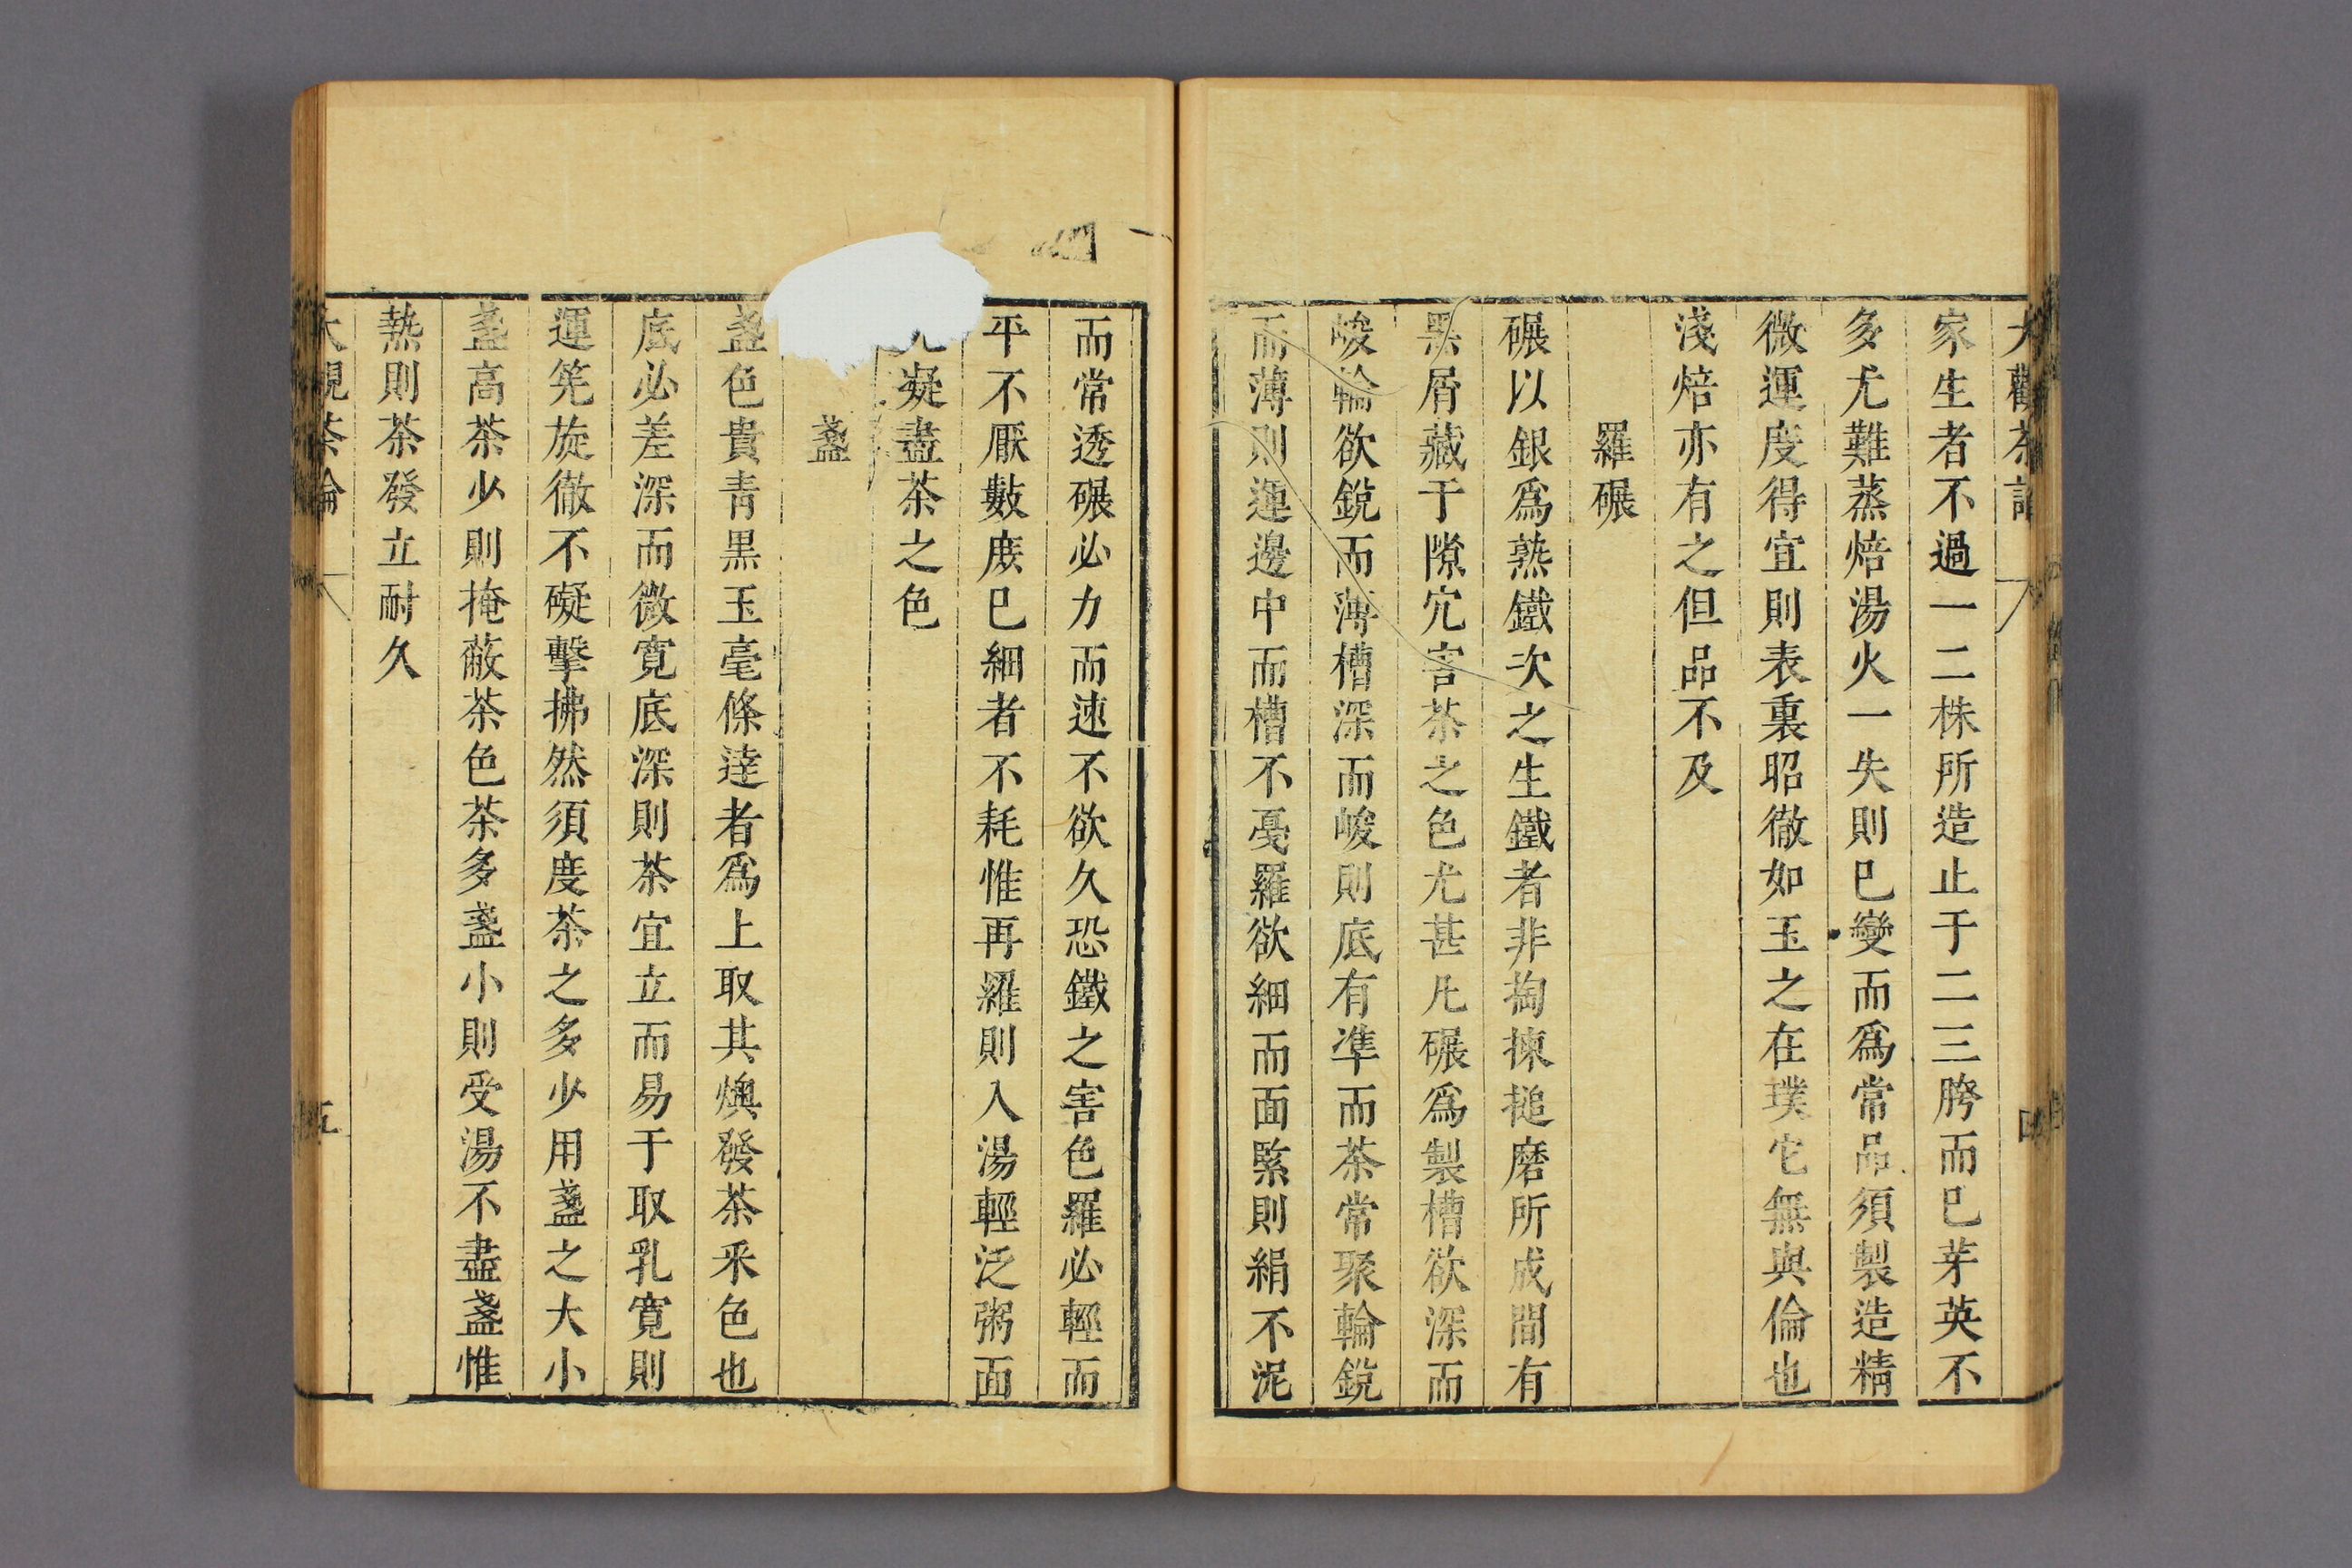 大觀茶論
四
家生者不過一二株所造止于二三胯而已芽英不
多尤難蒸焙湯火一失則已變而爲常品須製造精
微運度得宜則表裏昭徹如玉之在璞它無與倫也
淺焙亦有之但品不及
羅碾
碾以銀爲熟鐵次之生鐵者非掏揀搥磨所成間有
黑屑藏于隙穴害茶之色尤甚凡碾爲製槽欲深而
峻輪欲銳而薄槽深而峻則底有凖而茶常聚輪銳
而薄則運邊中而槽不戞羅欲細而面緊則絹不泥
而常透碾必力而速不欲久恐鐵之害色羅必輕而
平不厭數庻已細者不耗惟再羅則入湯輕泛粥面
光凝盡茶之色
盞
盞色貴青黑玉毫條達者爲上取其燠發茶采色也
底必差深而微寛底深則茶宜立而易于取乳寛則
運筅旋徹不礙擊拂然須度茶之多少用盞之大小
盞高茶少則掩蔽茶色茶多盞小則受湯不盡盞惟
熱則茶發立耐久
大觀茶論
五